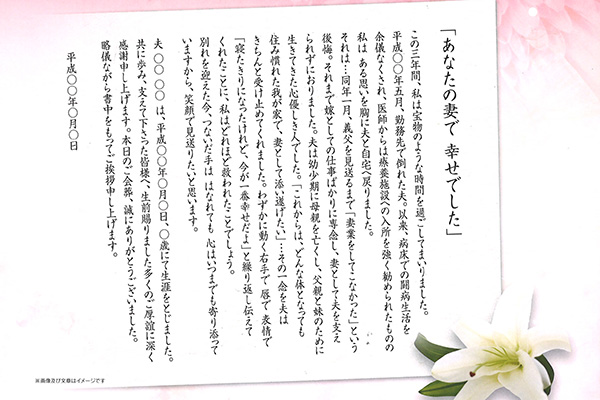 「あなたの妻で 幸せでした」
この三年間、私は宝物のような時間を過ごしてまいりました。
平成〇〇年五月、勤務先で倒れた夫。以来、病床での闘病生活を
余儀なくされ、医師からは療養施設への入所を強く勧められたものの
私は ある思いを胸に夫と自宅へ戻りました。
それは…同年一月、義父を見送るまで「妻業をしてこなかった」という
後悔。それまで嫁としての仕事ばかりに専念し、妻として夫を支え
られずにおりました。夫は幼少期に母親を亡くし、父親と妹のために
生きてきた心優しき人でした。「これからは、どんな体となっても
住み慣れた我が家で、妻として添い遂げたい」…その一念を夫は
きちんと受け止めてくれました。わずかに動く右手で 唇で 表情で
「寝たきりになったけれど、今が一番幸せだよ」と繰り返し伝えて
くれたことに、私はどれほど救われたことでしょう。
別れを迎えた今、つないだ手は はなれても 心はいつまでも寄り添って
いますから、笑顔で見送りたいと思います。
夫 〇〇 〇〇 は、平成〇〇年〇月〇日、〇歳にて生涯をとじました。
共に歩み、支えて下さった皆様へ、生前賜りました多くのご厚誼に深く
感謝申し上げます。本日のご会葬、誠にありがとうございました。
略儀ながら書中をもってご挨拶申し上げます。
平成〇〇年〇月〇日
※画像及び文章はイメージです